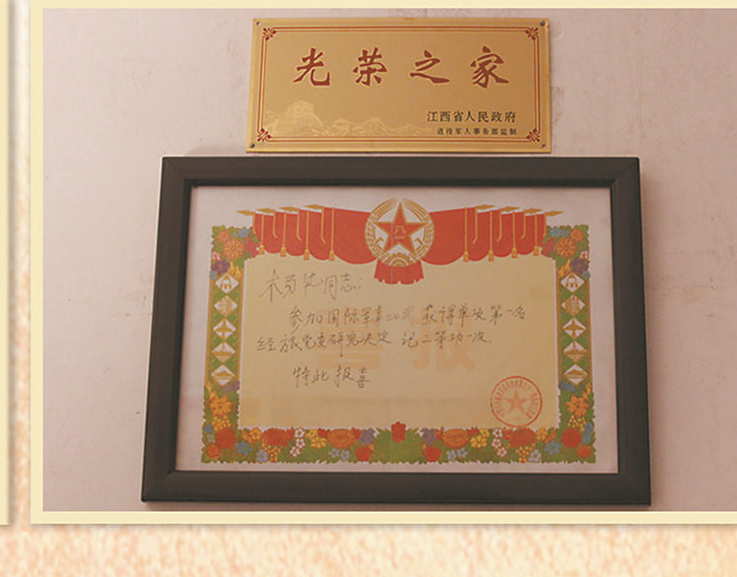 光荣之家
江西省人民政府
退役军人事务部监制
同志:
参加国际军事比武 获得单项第一名
经旅党委研究决定 记二等功一次.
特此报喜
喜报
八一